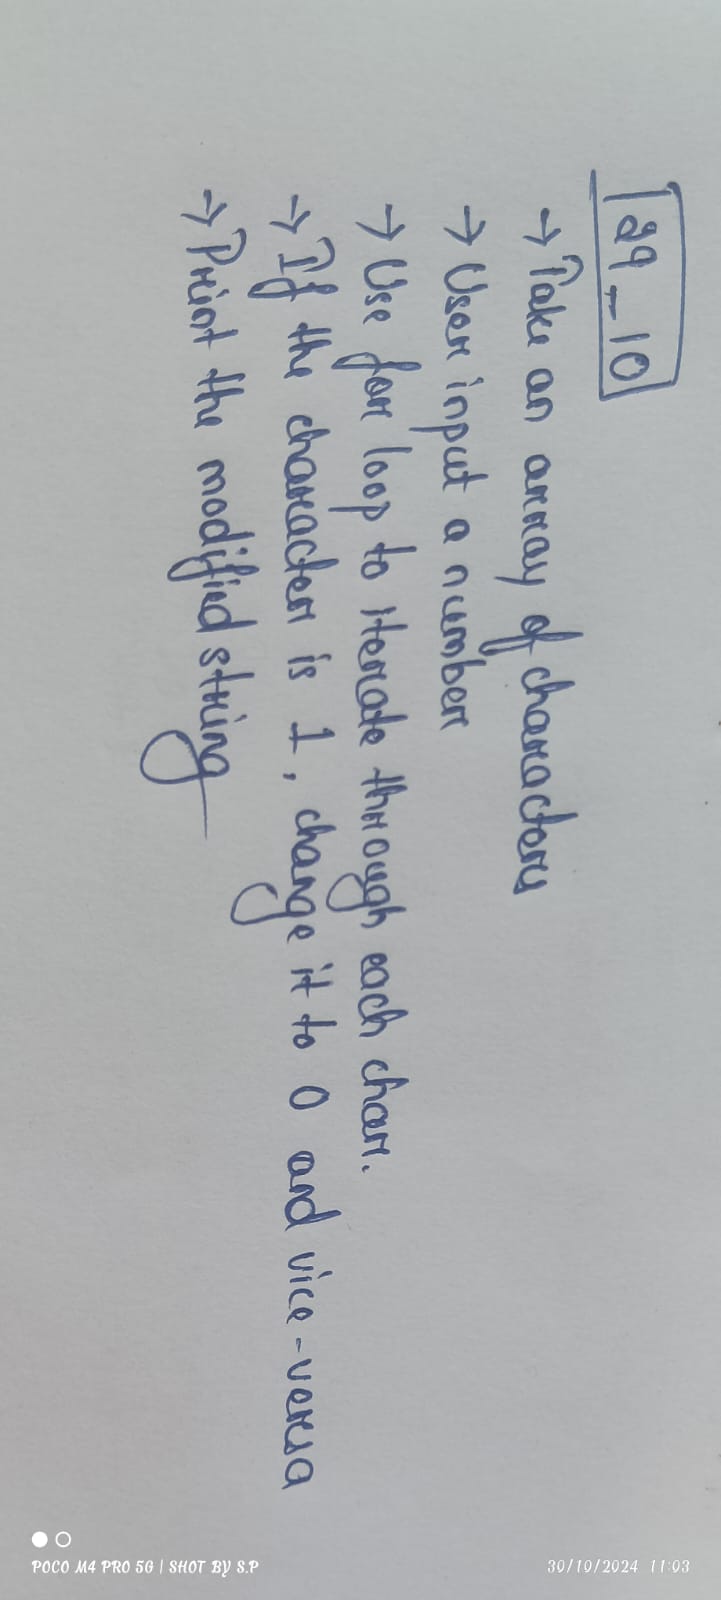 29-10
→ Take an array of characters
→ User input a number
→ Use for loop to iterate through each char.
→ If the character is 1, change it to 0 and vice-versa
→ Print the modified string
POCO M4 PRO 5G | SHOT BY S.P
30/10/2024 11:03